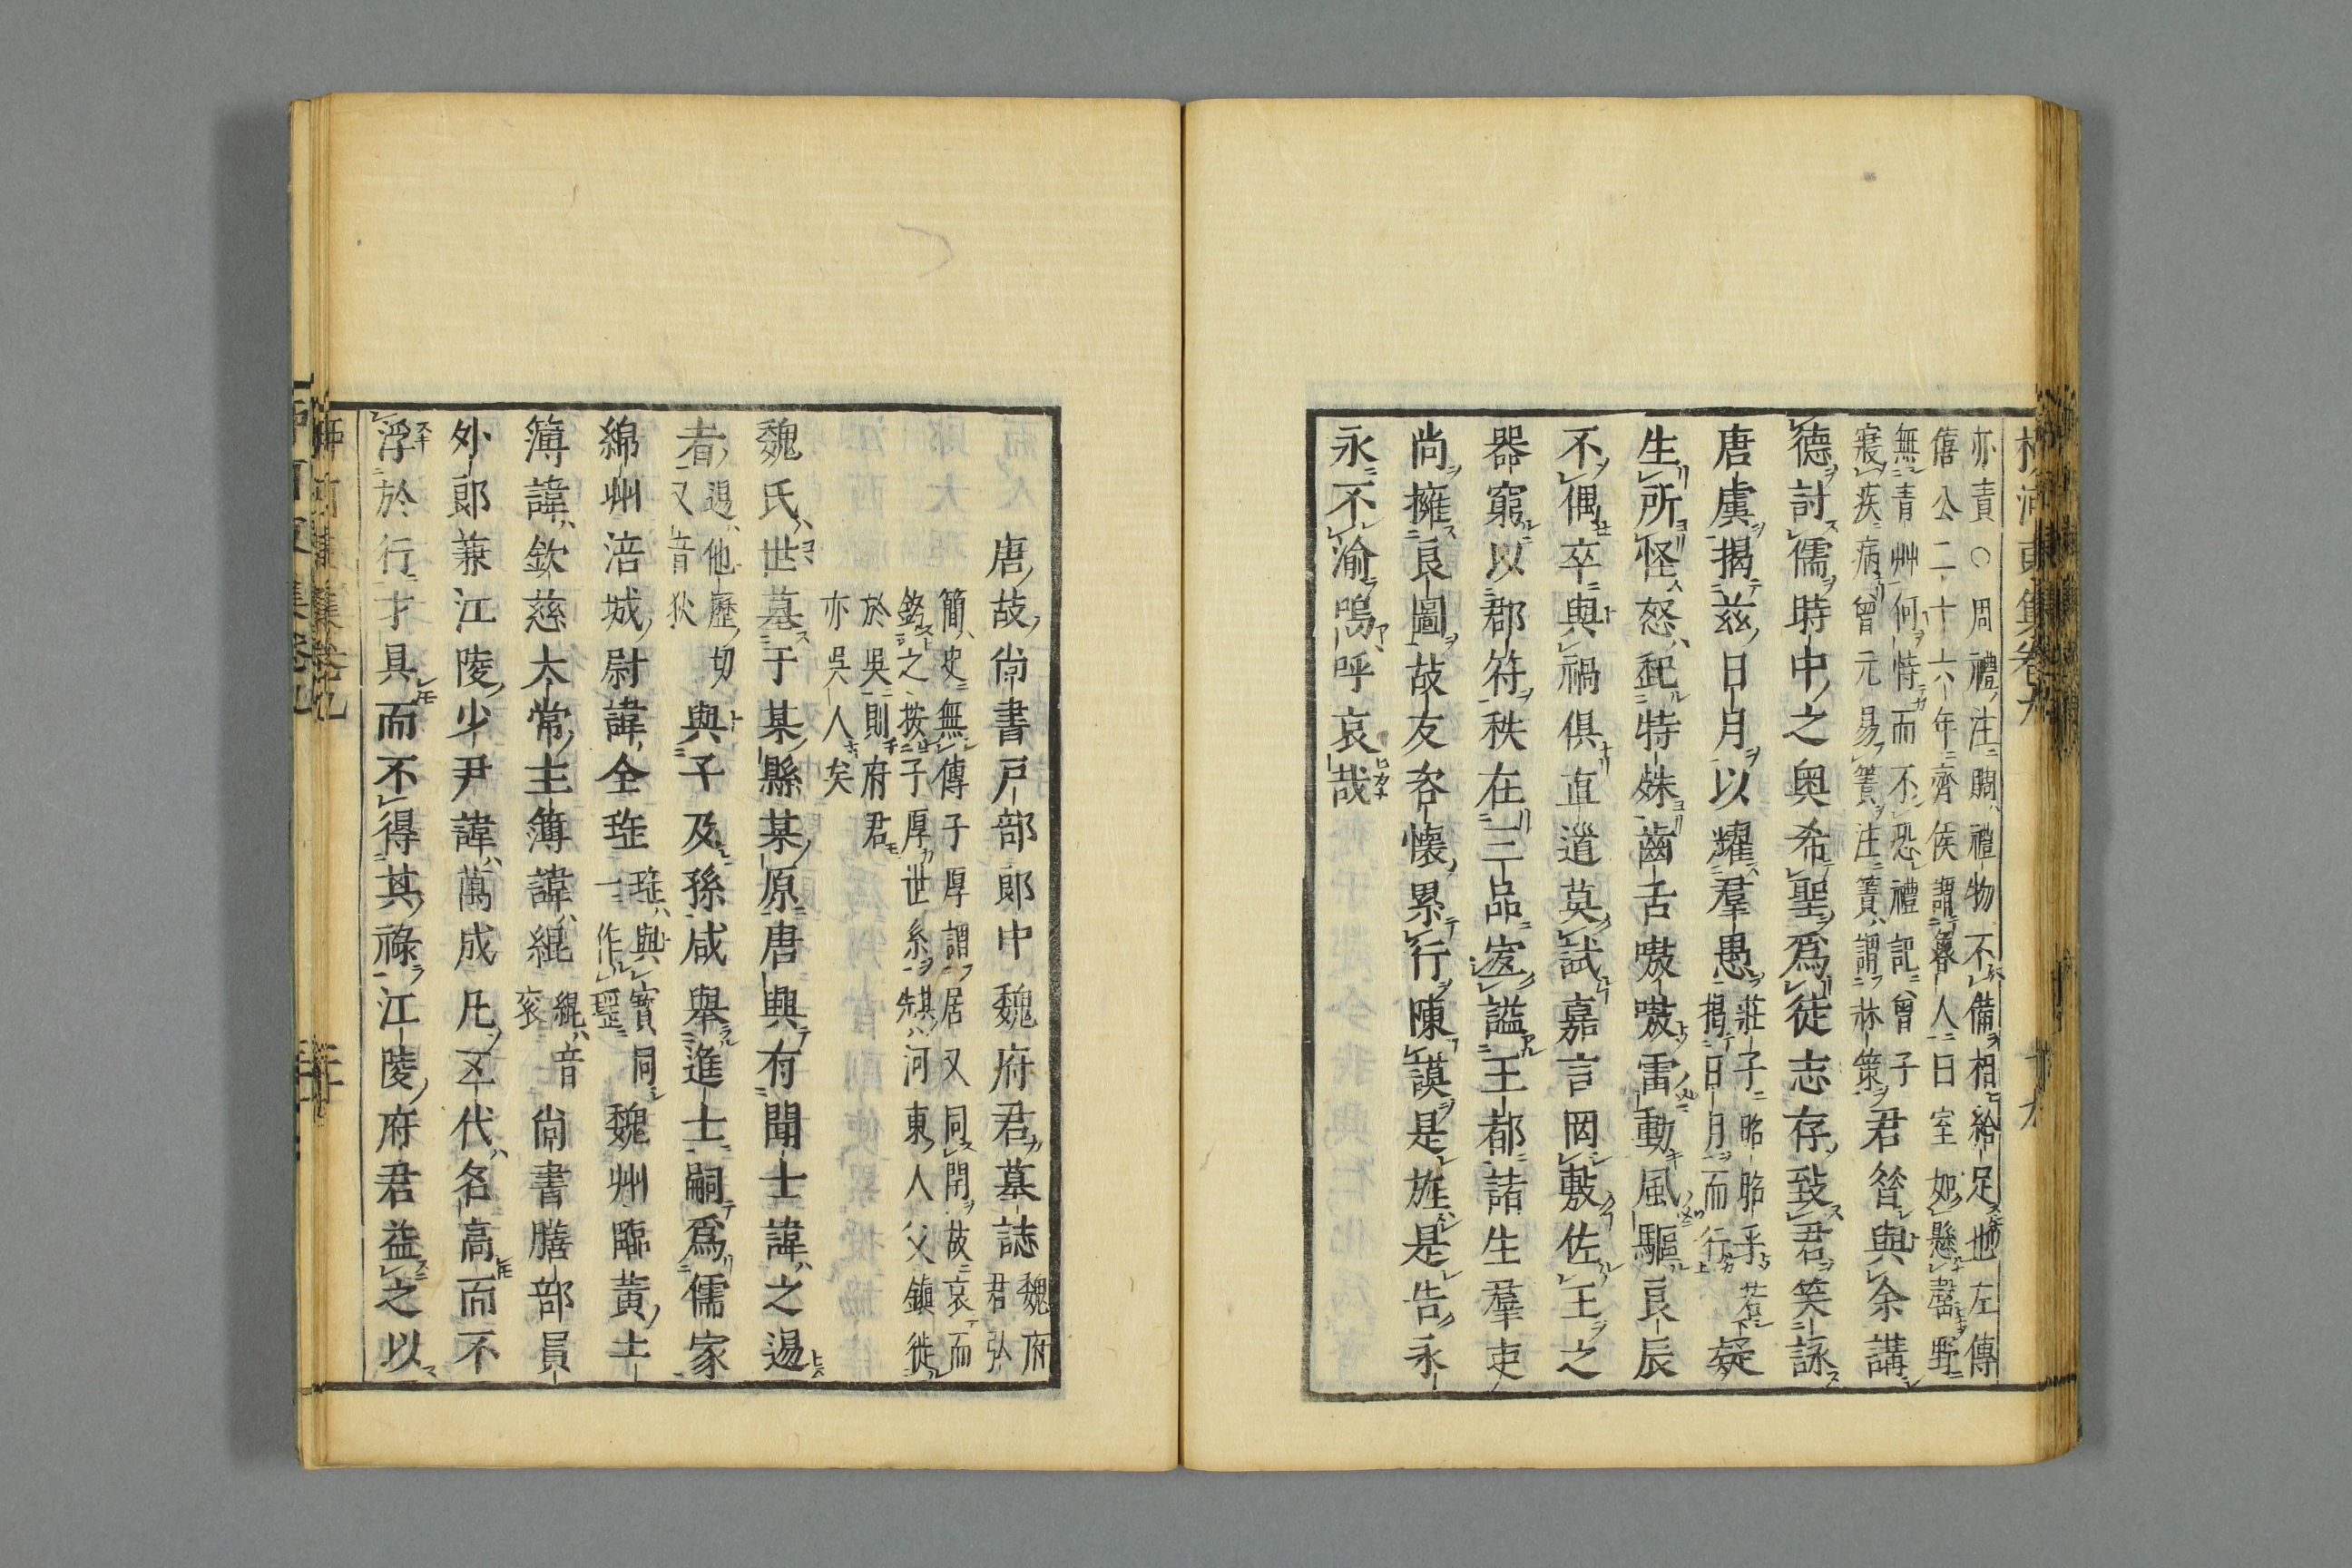 亦責○周禮注賙禮物不備相給足也左傳
僖公二十六年齊侯謂魯人曰室如懸罄野
無青艸何恃而不恐禮記曾子
寢疾病曾元易簀注簀謂牀策君答與余講
德討儒時中之奥希聖爲徒志存致君笑詠
唐虞揭兹日月以耀羣愚莊子昭昭乎若揭日月而行疑
生所怪怒起特殊齒舌嗷嗷雷動風驅良辰
不偶卒與禍俱直道莫試嘉言罔敷佐王之
器窮以郡符秩在三品宜謚王都諸生羣吏
尚擁良圖故友咨懷累行陳謨是旌是告永
永不渝嗚呼哀哉
唐故尚書戸部郎中魏府君墓誌魏府君弘
簡史無傳子厚謂居又同閈故哀而
銘之按子厚世系其先河東人父鎮徙
於吳則府君
亦吳人矣
魏氏世墓于某縣某原唐興有聞士諱之逷
者逷他歷切又音狄與子及孫咸舉進士嗣爲儒家
綿州涪城尉諱全珤珤與寶同一作琞魏州臨黄主
簿諱欽慈太常主簿諱緄緄音衮尚書膳部員
外郎兼江陵少尹諱萬成凡五代名高而不
浮於行才具而不得其祿江陵府君益之以